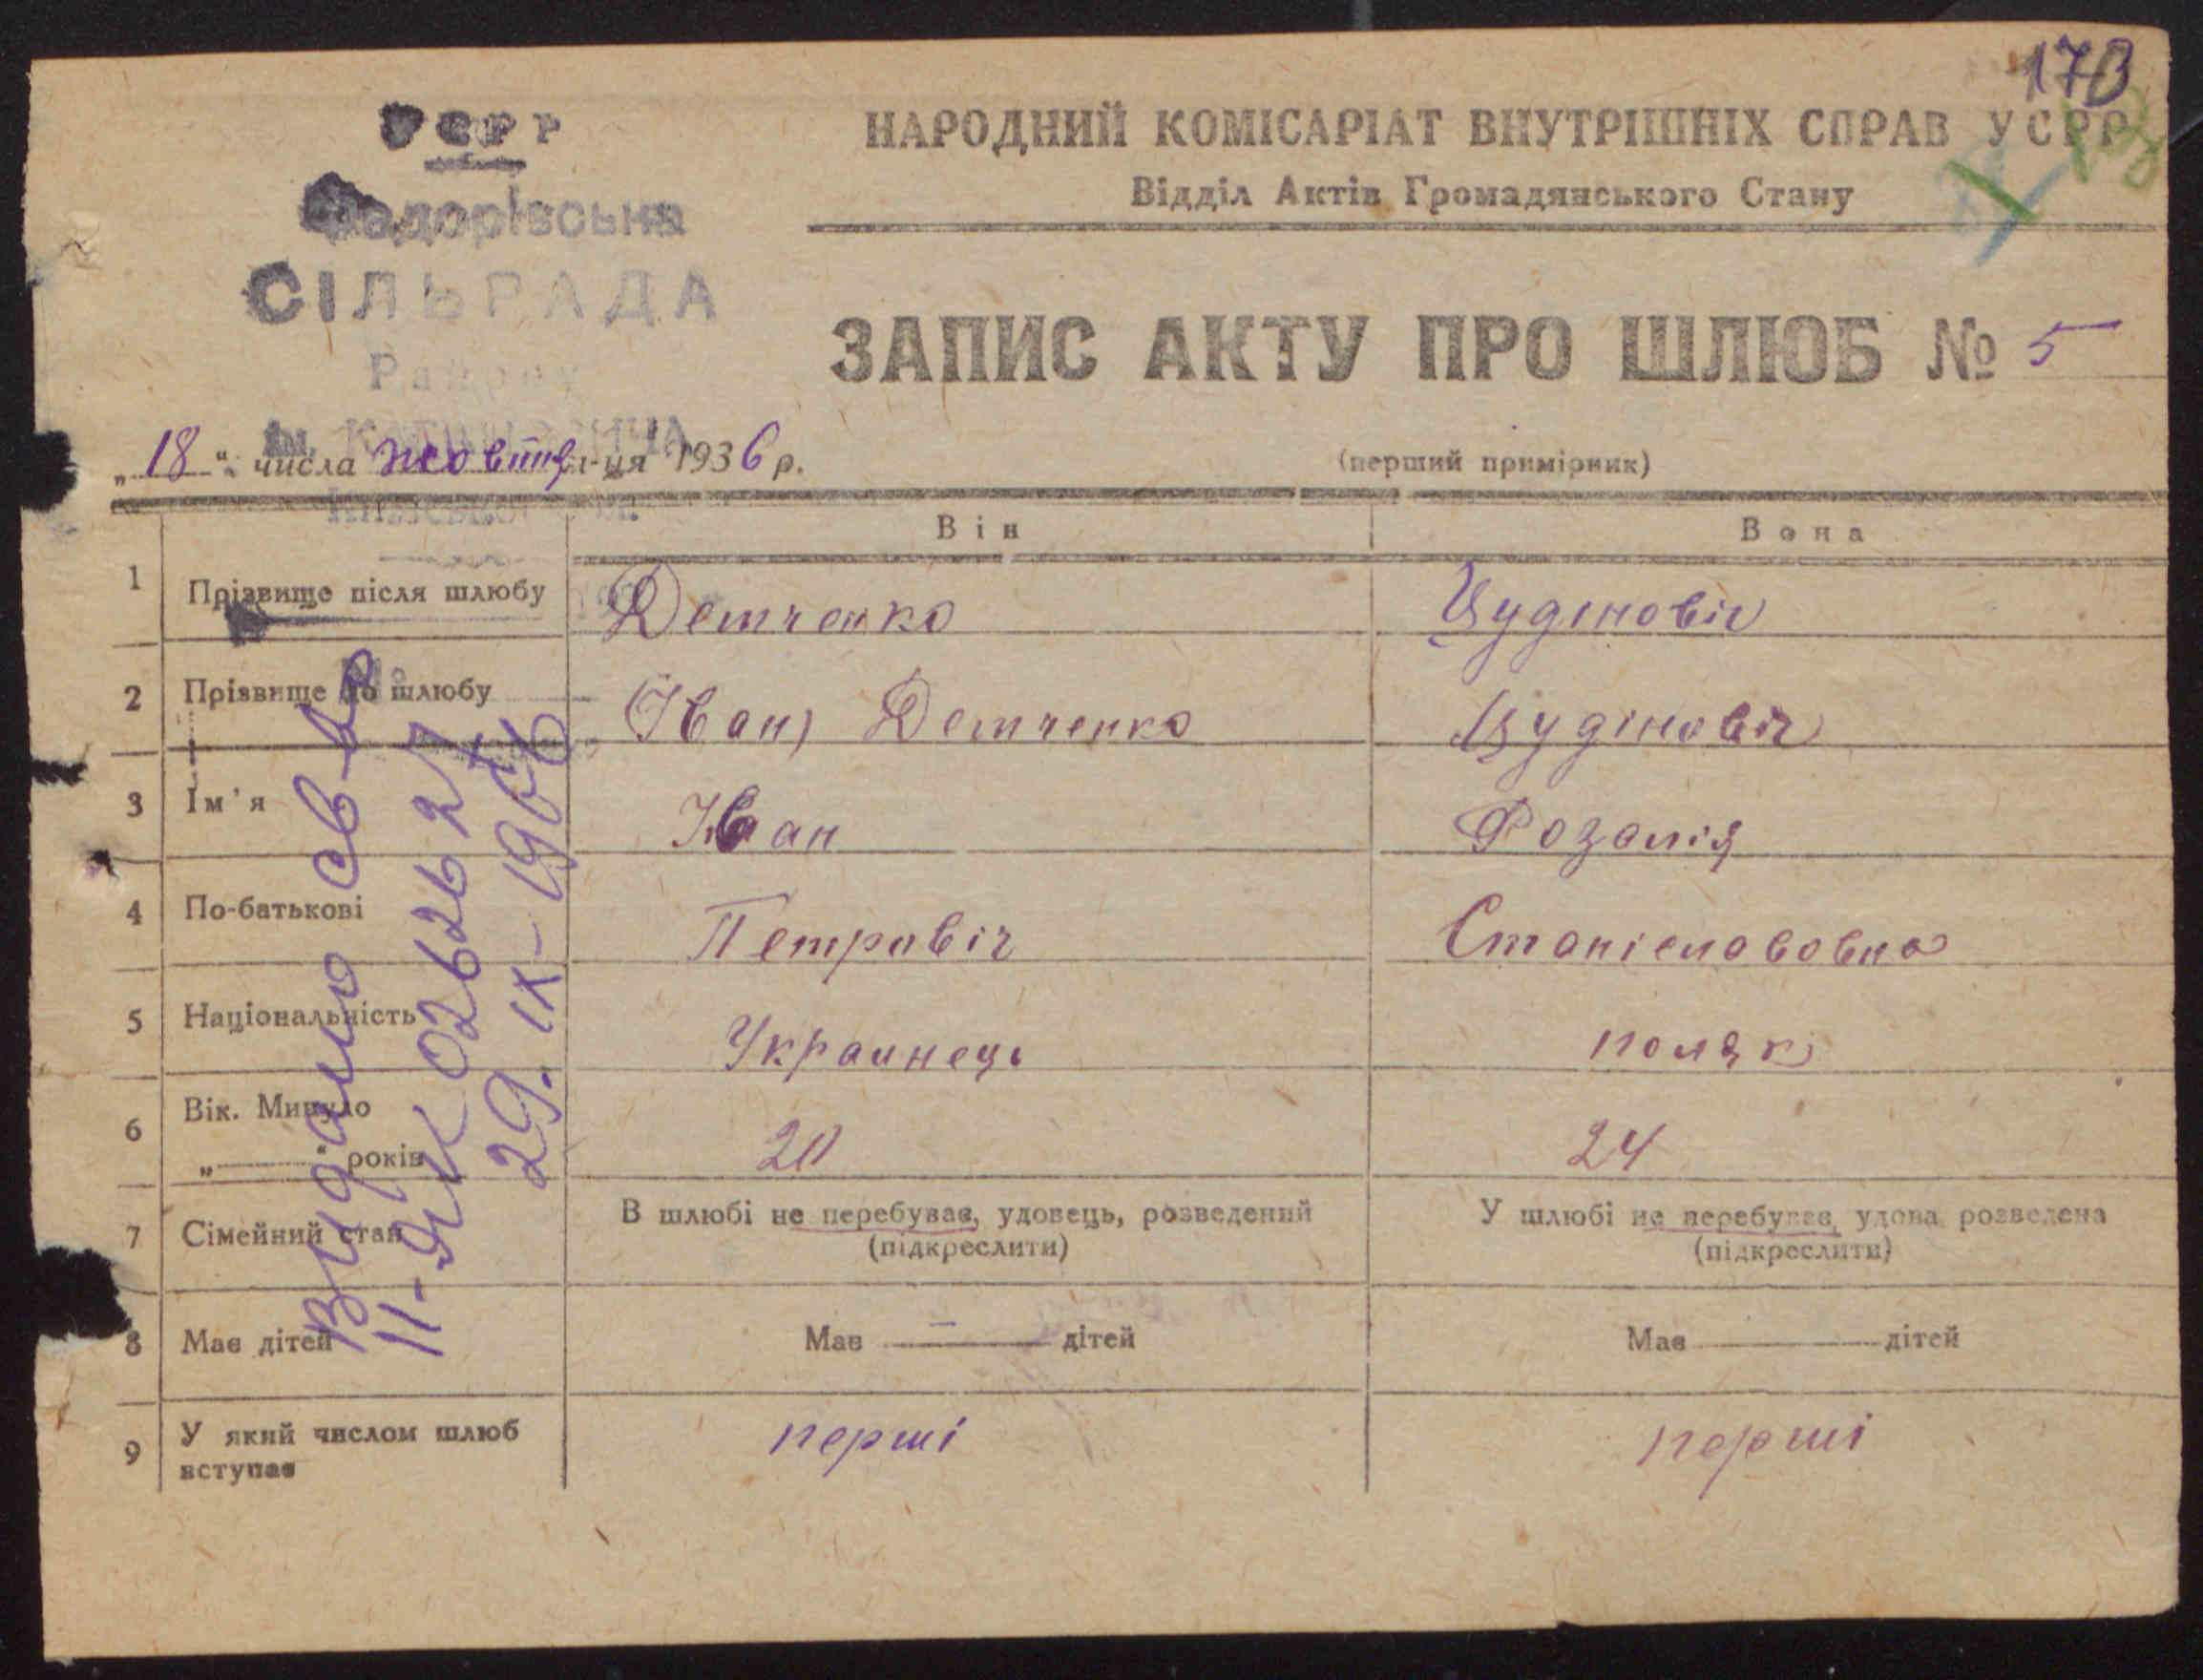 173
УСРР
Федорівська
СІЛЬРАДА
Району
ім. КАГАНОВИЧА
Київської обл.
НАРОДНИЙ КОМІСАРІАТ ВНУТРІШНІХ СПРАВ УСРР
Відділ Актів Громадянського Стану
ЗАПИС АКТУ ПРО ШЛЮБ № 5
„18“ числа жовтня м-ця 1936 р.
(перший примірник)
Він Вона
1 Прізвище після шлюбу Детченко Цудіновіч
2 Прізвище до шлюбу Іван Детченко Цудіновіч
3 Ім'я Іван Розалія
4 По-батькові Петровіч Станіславовна
5 Національність Украинець поляк
6 Вік. Минуло „ “ років 20 24
7 Сімейний стан В шлюбі не перебуває, удовець, розведений У шлюбі не перебуває, удова розведена
(підкреслити) (підкреслити)
8 Має дітей Має — дітей Має дітей
9 У який числом шлюб вступає перші перші
Видано св-во
II-ЯК 026262
29. IX-196